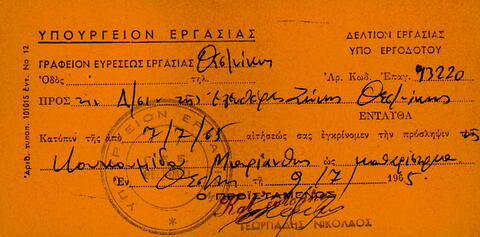 ΥΠΟΥΡΓΕΙΟΝ ΕΡΓΑΣΙΑΣ
ΔΕΛΤΙΟΝ ΕΡΓΑΣΙΑΣ
ΥΠΟ ΕΡΓΟΔΟΤΟΥ
ΓΡΑΦΕΙΟΝ ΕΥΡΕΣΕΩΣ ΕΡΓΑΣΙΑΣ Θεσ/νίκης
Ὁδὸς τηλ.
Ἀρ. Κωδ. Ἐπαγ. 93220
ΠΡΟΣ τὴν Δ/σιν τῆς Ἐλευθέρας Ζώνης Θεσ/νίκης
ΕΝΤΑΥΘΑ
Κατόπιν τῆς ἀπὸ 7/7/65 αἰτήσεώς σας ἐγκρίνομεν τὴν πρόσληψιν τῆς
Μαριάνθης ὡς καθαρίστρια
Ἐν Θεσ/νίκῃ τῇ 9/7/1965.
Ο ΠΡΟΪΣΤΑΜΕΝΟΣ
ΓΕΩΡΓΙΑΔΗΣ ΝΙΚΟΛΑΟΣ
Ἀριθ. τυποπ. 10105 ἐντ. Νο 12
ΥΠΟΥΡΓΕΙΟΝ ΕΡΓΑΣΙΑΣ